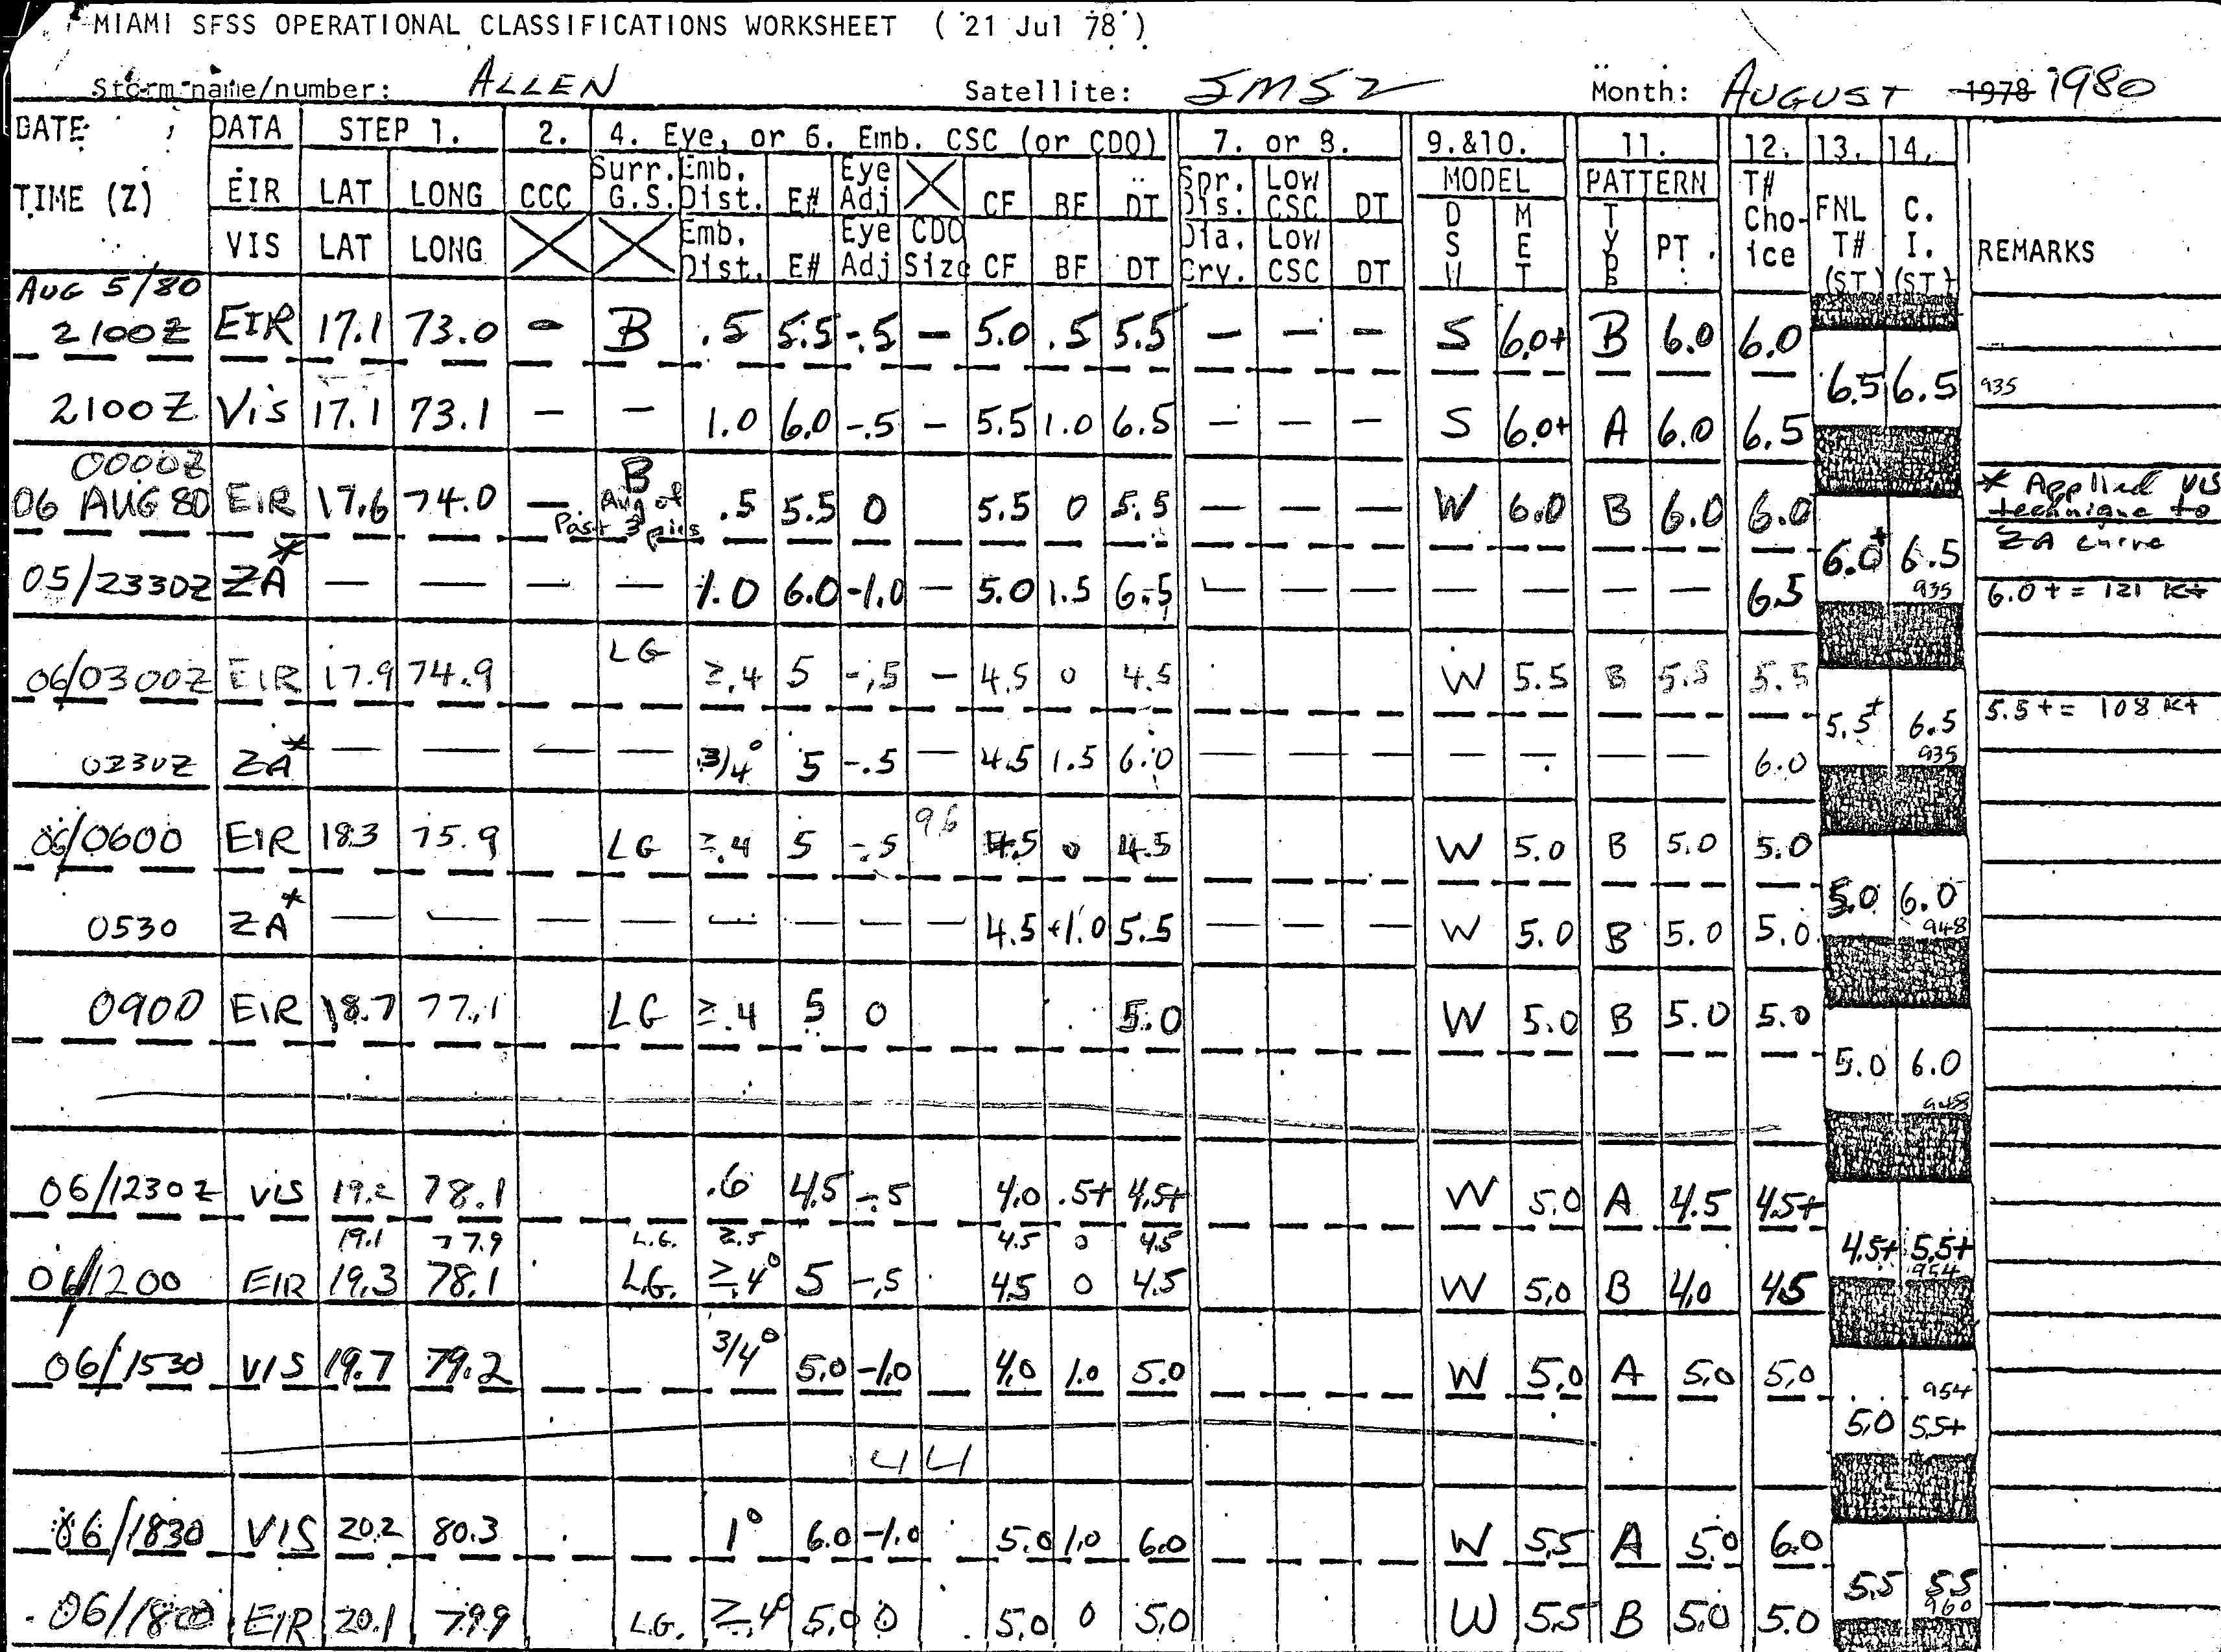 MIAMI SFSS OPERATIONAL CLASSIFICATIONS WORKSHEET ( 21 Jul 78 )
Storm name/number: ALLEN Satellite: SMS2 Month: AUGUST 1978 1980
DATE DATA STEP 1. 2. 4. Eye, or 6. Emb. CSC (or CDO) 7. or 8. 9.&10. 11. 12. 13. 14.
TIME (Z) EIR LAT LONG CCC Surr. G.S. Emb. Dist. E# Eye Adj CF BF DT Spr. Dis. Low CSC DT MODEL PATTERN T# Choice FNL T# (ST) C. I. (ST) REMARKS
VIS LAT LONG Emb. Dist. E# Eye Adj CDO Size CF BF DT Dia. Crv. Low CSC DT DSW MET TYPE PT.
AUG 5/80
2100Z EIR 17.1 73.0 - B .5 5.5 -.5 - 5.0 .5 5.5 - - - S 6.0+ B 6.0 6.0
6.5 6.5 935
2100Z Vis 17.1 73.1 - - 1.0 6.0 -.5 - 5.5 1.0 6.5 - - - S 6.0+ A 6.0 6.5
0000Z
06 AUG 80 EIR 17.6 74.0 - B Avg of Past 3 pics .5 5.5 0 5.5 0 5.5 - - - W 6.0 B 6.0 6.0
* Applied VIS
technique to
ZA curve
6.0+ 6.5
935
05/2330Z ZA* - - - - 1.0 6.0 -1.0 - 5.0 1.5 6.5 - - - - - - - 6.5
6.0+ = 121 Kt
06/0300Z EIR 17.9 74.9 LG ≥.4 5 -.5 - 4.5 0 4.5 W 5.5 B 5.5 5.5
5.5+ 6.5 5.5+ = 108 Kt
935
0230Z ZA* - - - - 3/4° 5 -.5 - 4.5 1.5 6.0 - - - - - - - 6.0
06/0600 EIR 18.3 75.9 LG ≥.4 5 -.5 96 4.5 0 4.5 W 5.0 B 5.0 5.0
5.0 6.0
948
0530 ZA* - - - - - - - - 4.5 +1.0 5.5 - - - W 5.0 B 5.0 5.0
0900 EIR 18.7 77.1 LG ≥.4 5 0 5.0 W 5.0 B 5.0 5.0
5.0 6.0
948
06/1230Z VIS 19.2 78.1 .6 4.5 -.5 4.0 .5+ 4.5+ W 5.0 A 4.5 4.5+
19.1 77.9 L.G. ≥.5 4.5 0 4.5
4.5+ 5.5+
954
06/1200 EIR 19.3 78.1 L.G. ≥.4° 5 -.5 4.5 0 4.5 W 5.0 B 4.0 4.5
06/1530 VIS 19.7 79.2 3/4° 5.0 -1.0 4.0 1.0 5.0 W 5.0 A 5.0 5.0
954
5.0 5.5+
44
06/1830 VIS 20.2 80.3 1° 6.0 -1.0 5.0 1.0 6.0 W 5.5 A 5.0 6.0
5.5 5.5
960
06/1800 EIR 20.1 79.9 L.G. ≥.4° 5.0 0 5.0 0 5.0 W 5.5 B 5.0 5.0